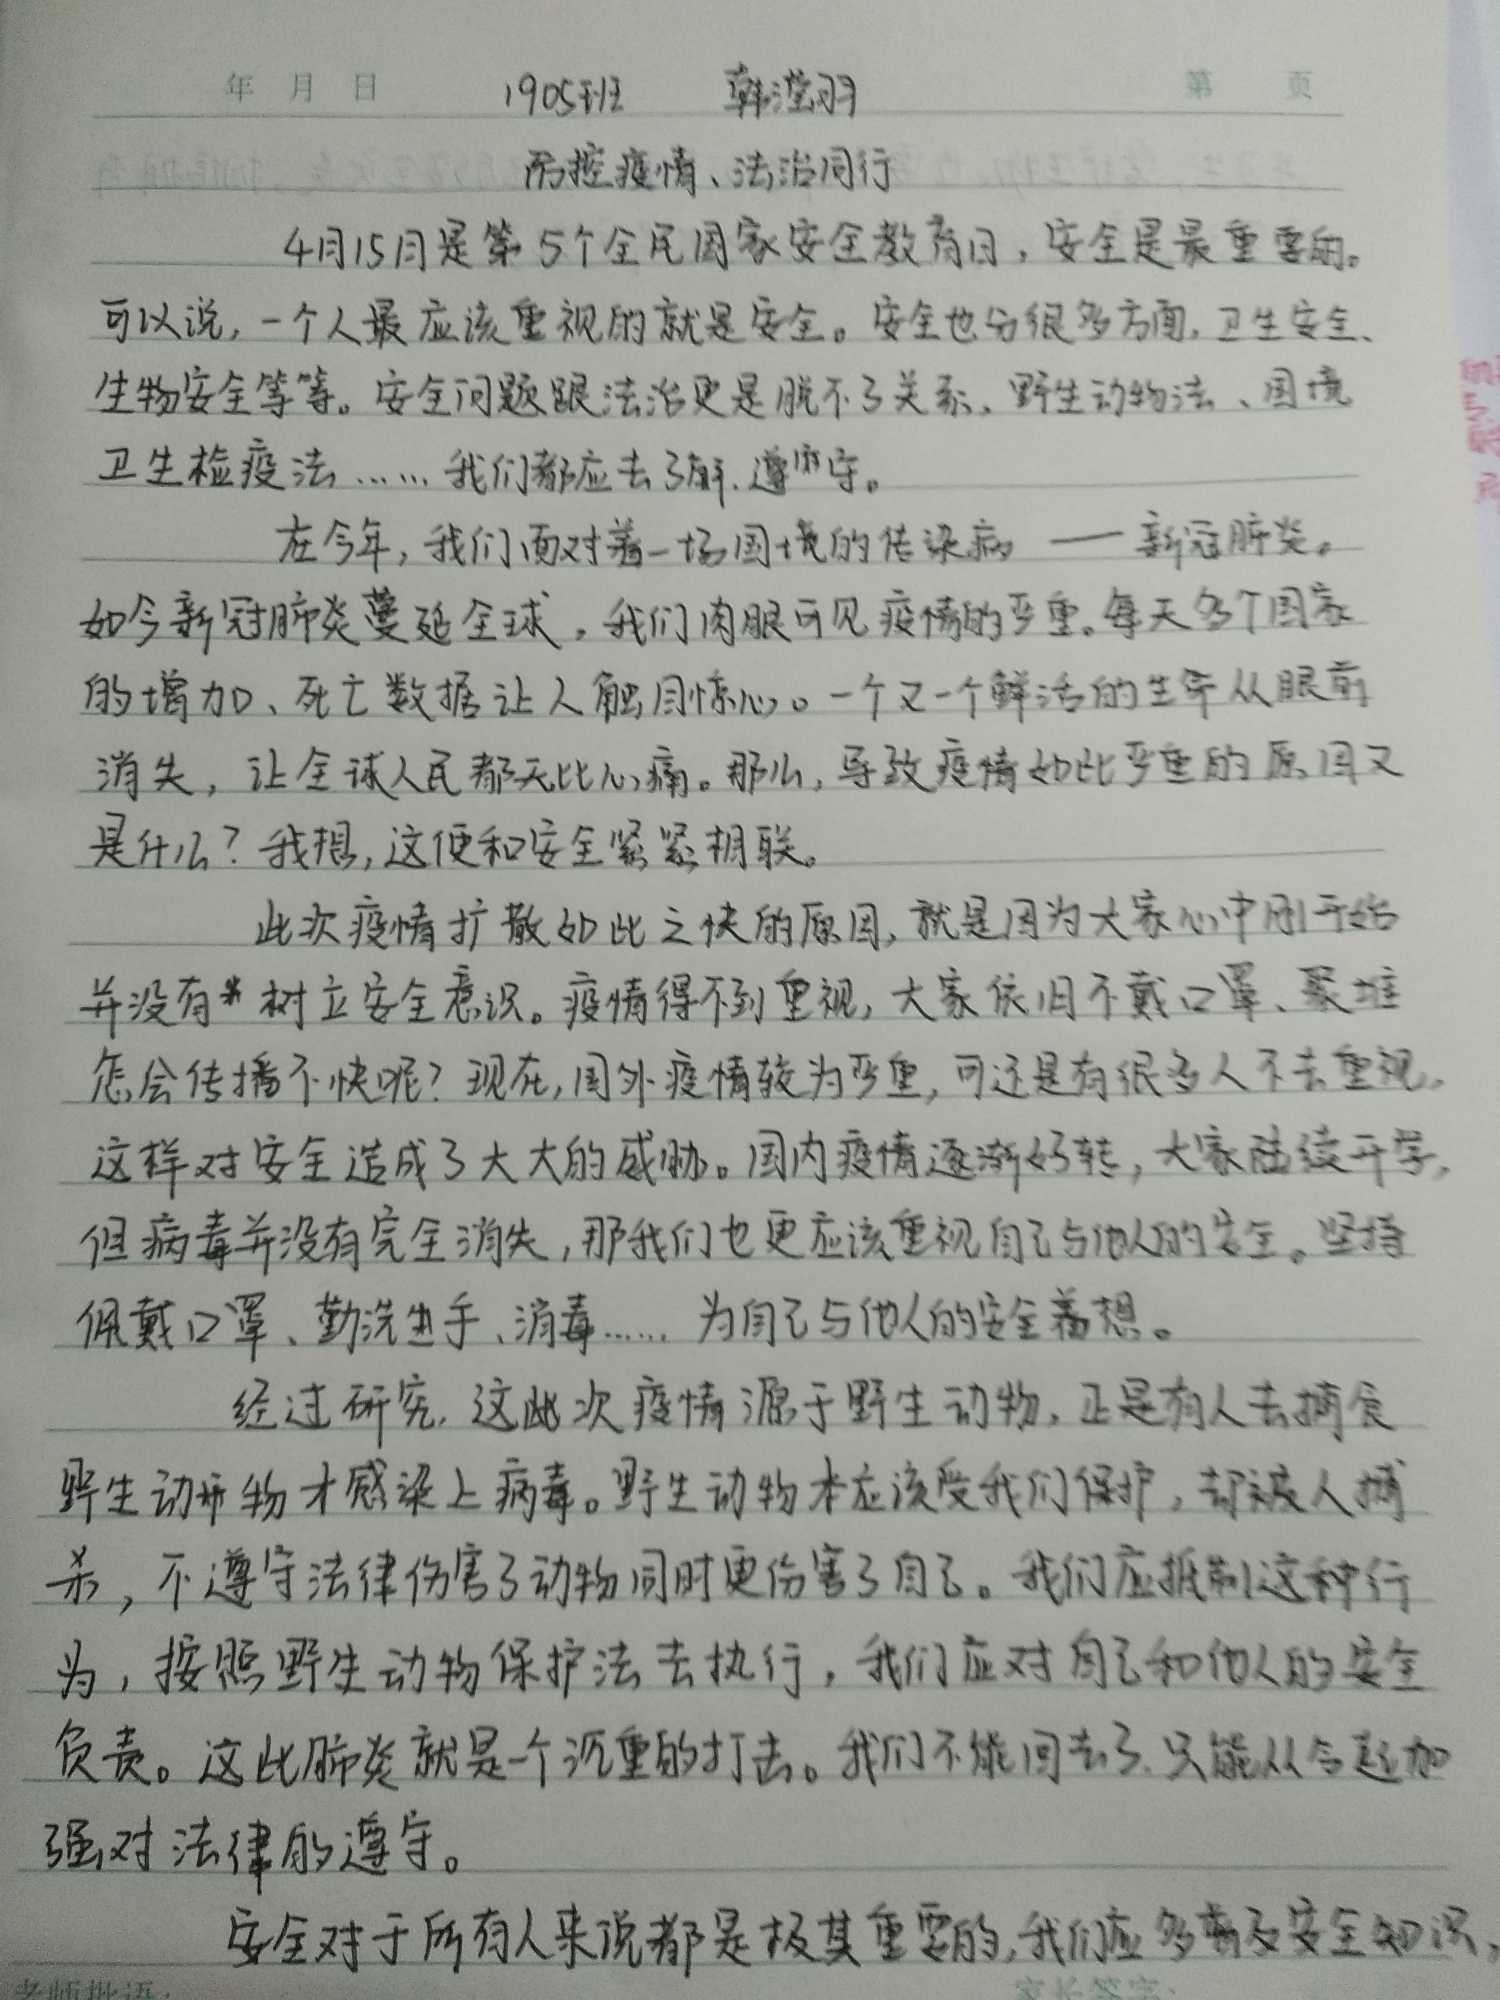 年 月 日 1905班 韩滢羽 第 页
防控疫情、法治同行
4月15日是第5个全民国家安全教育日,安全是最重要的。
可以说,一个人最应该重视的就是安全。安全也分很多方面,卫生安全、
生物安全等等。安全问题跟法治更是脱不了关系,野生动物法、国境
卫生检疫法……我们都应去了解、遵守。
在今年,我们面对着一场国境的传染病——新冠肺炎。
如今新冠肺炎蔓延全球,我们肉眼可见疫情的严重。每天多个国家
的增加、死亡数据让人触目惊心。一个又一个鲜活的生命从眼前
消失,让全球人民都无比心痛。那么,导致疫情如此严重的原因又
是什么?我想,这便和安全紧紧相联。
此次疫情扩散如此之快的原因,就是因为大家心中刚开始
并没有树立安全意识。疫情得不到重视,大家依旧不戴口罩、聚堆
怎会传播不快呢?现在,国外疫情较为严重,可还是有很多人不去重视,
这样对安全造成了大大的威胁。国内疫情逐渐好转,大家陆续开学,
但病毒并没有完全消失,那我们也更应该重视自己与他人的安全。坚持
佩戴口罩、勤洗手、消毒……为自己与他人的安全着想。
经过研究,这此次疫情源于野生动物,正是有人去捕食
野生动物才感染上病毒。野生动物本应该受我们保护,却被人捕
杀,不遵守法律伤害了动物同时更伤害了自己。我们应抵制这种行
为,按照野生动物保护法去执行,我们应对自己和他人的安全
负责。这此肺炎就是一个沉重的打击。我们不能回去了,只能从今起加
强对法律的遵守。
安全对于所有人来说都是极其重要的,我们应多普及安全知识,
老师批语: 家长签字: